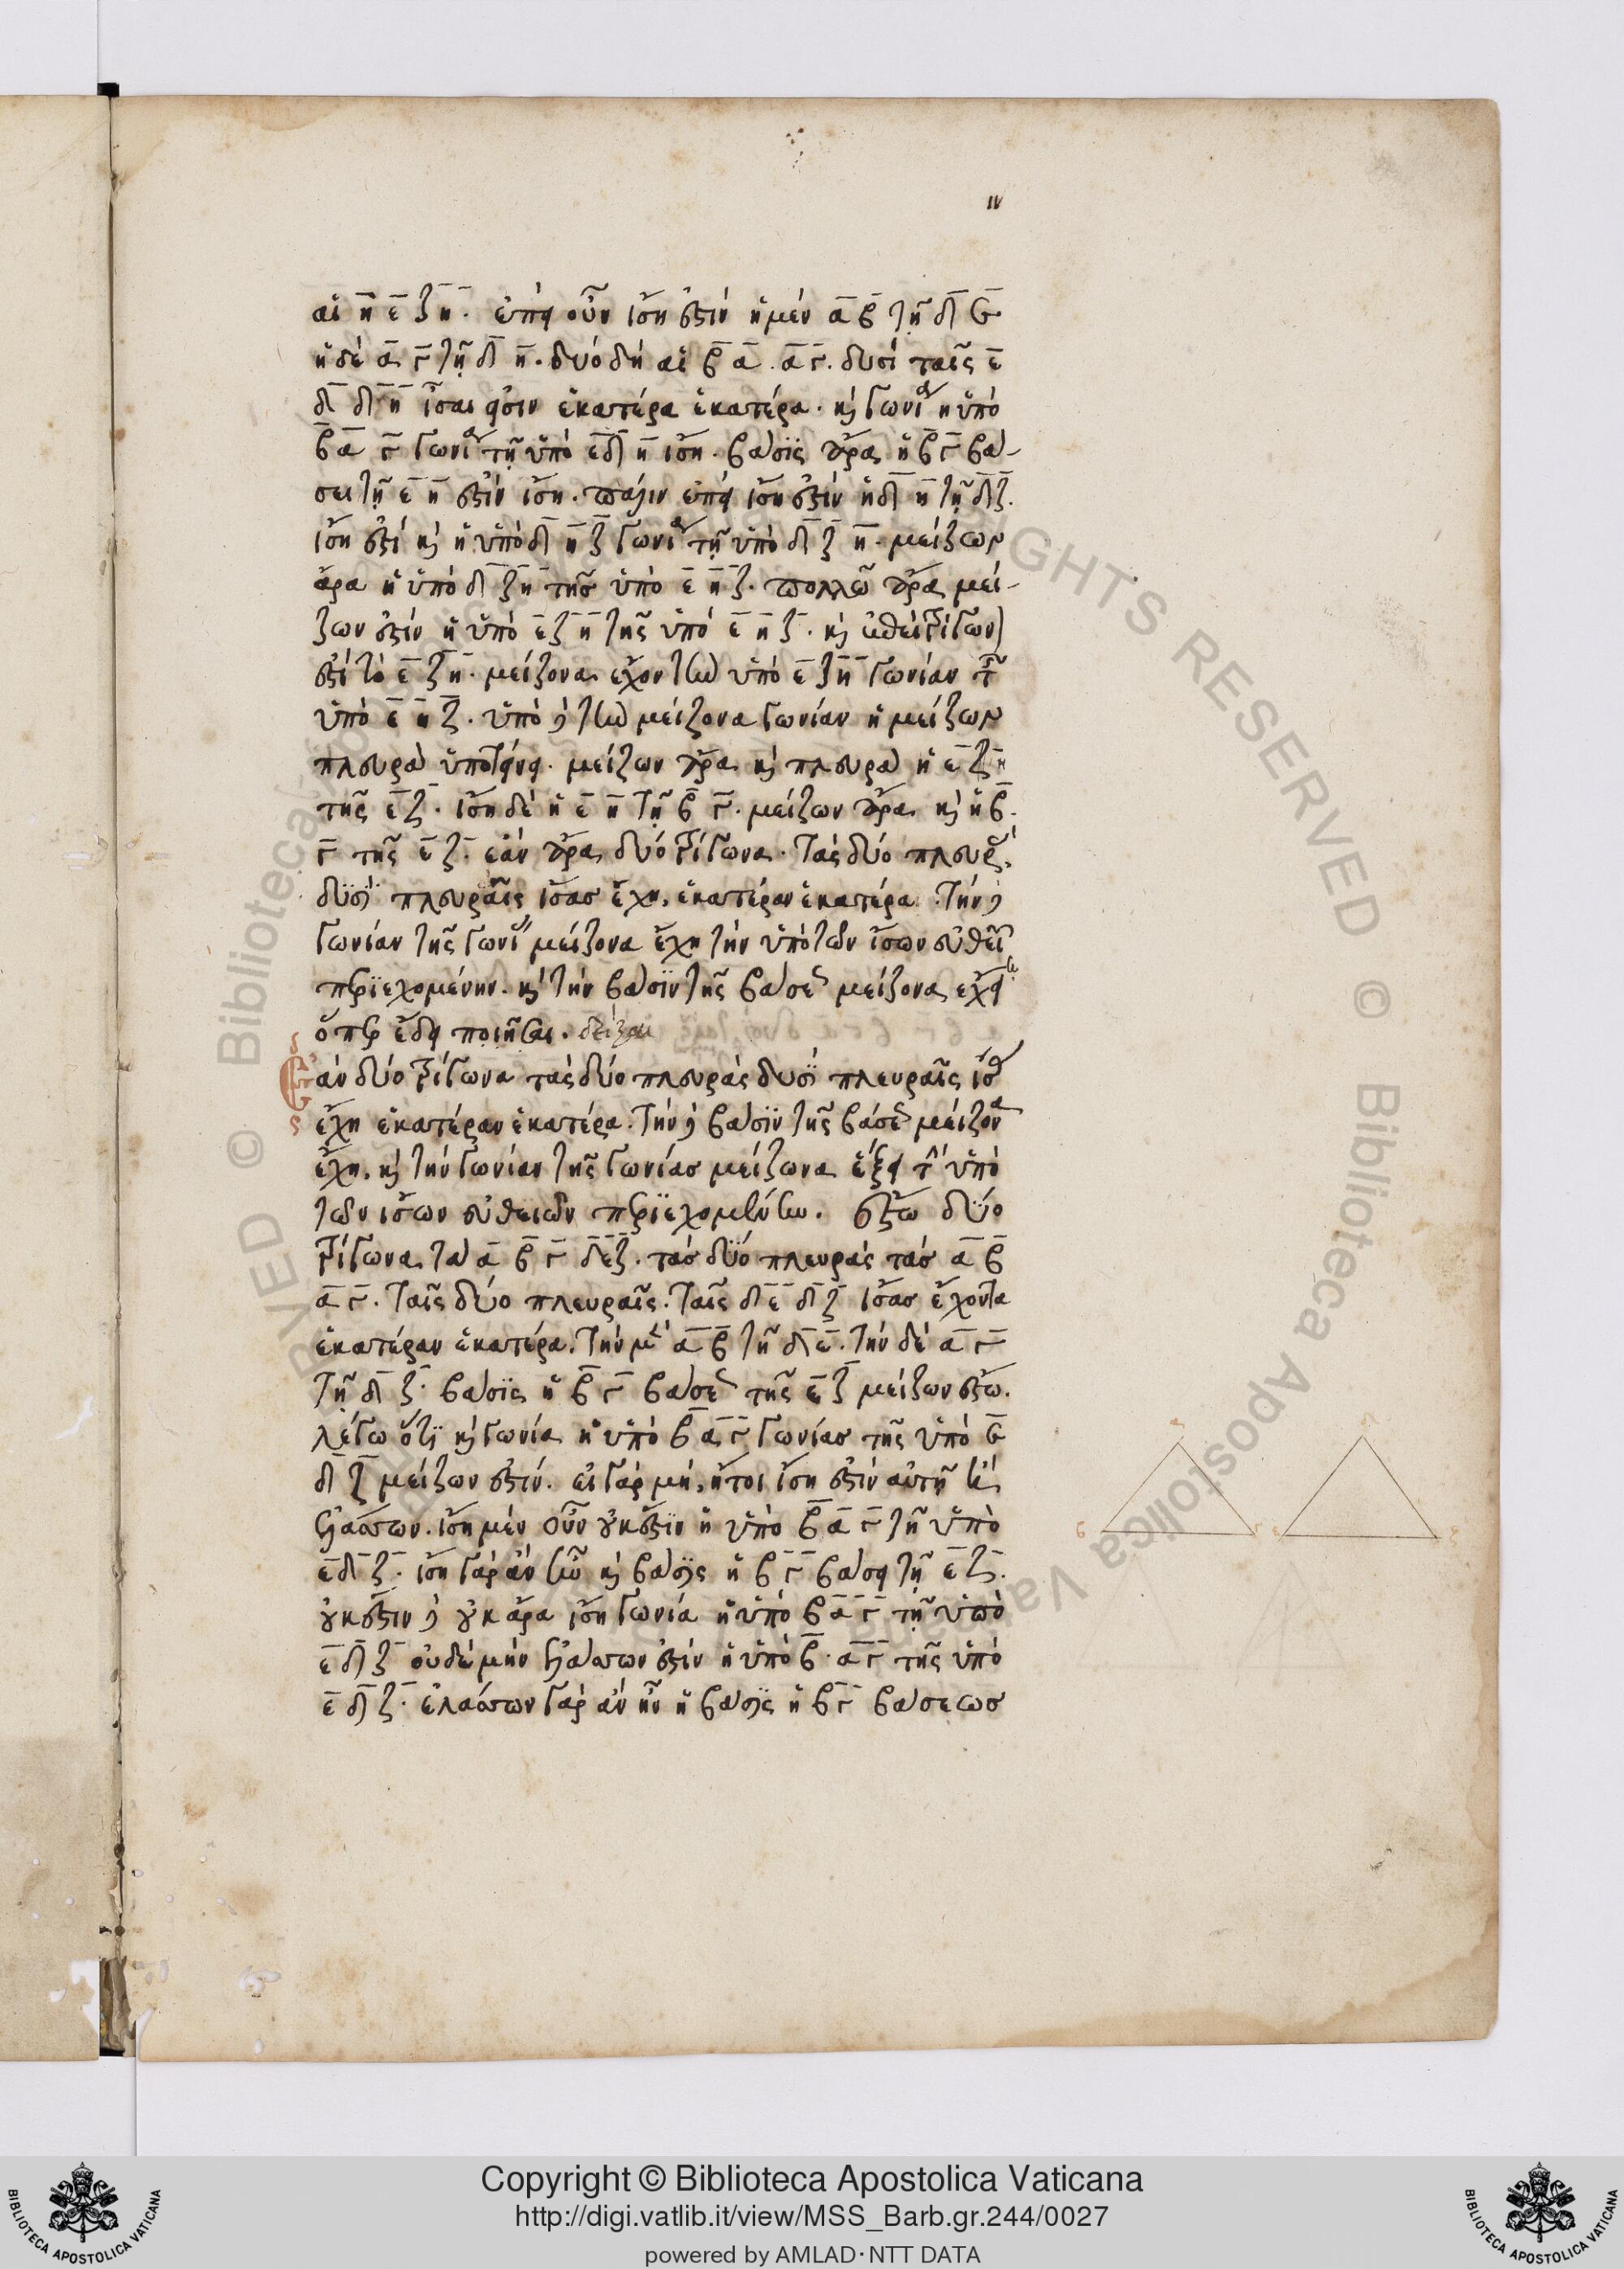 αἱ η̄ ε̄ ζ̄ η̄. ἐπεὶ οὖν ἴση ἐστὶν ἡ μὲν ᾱ β̄ τῇ δ̄ ε̄
ἡ δὲ ᾱ γ̄ τῇ δ̄ η̄. δύο δὴ αἱ β̄ ᾱ. ᾱ γ̄. δυσὶ ταῖς ε̄
δ̄ δ̄ η̄ ἴσαι εἰσὶν ἑκατέρα ἑκατέρα. καὶ γωνία ἡ ὑπὸ
β̄ ᾱ γ̄ γωνία τῇ ὑπὸ ε̄ δ̄ η̄ ἴση. βάσϊς ἄρα ἡ β̄ γ̄ βά-
σει τῇ ε̄ η̄ ἐστὶν ἴση. πάλιν ἐπεὶ ἴση ἐστὶν ἡ δ̄ η̄ τῇ δ̄ ζ̄.
ἴση ἐστὶ καὶ ἡ ὑπὸ δ̄ η̄ ζ̄ γωνία τῇ ὑπὸ δ̄ ζ̄ η̄. μείζων
ἄρα ἡ ὑπὸ δ̄ ζ̄ η̄ τῆς ὑπὸ ε̄ η̄ ζ̄. πολλῶ ἄρα μεί-
ζων ἐστὶν ἡ ὑπὸ ε̄ ζ̄ η̄ τῆς ὑπὸ ε̄ η̄ ζ̄. καὶ ἐπεὶ τρίγων
ἐστὶ τὸ ε̄ ζ̄ η̄. μείζονα ἔχον τὴν ὑπὸ ε̄ ζ̄ η̄ γωνίαν τῆς
ὑπὸ ε̄ η̄ ζ̄. ὑπὸ δὲ τὴν μείζονα γωνίαν ἡ μείζων
πλευρὰ ὑποτείνει. μείζων ἄρα καὶ πλευρὰ ἡ ε̄ ζ̄ η̄
τῆς ε̄ ζ̄. ἴση δὲ ἡ ε̄ η̄ τῇ β̄ γ̄. μείζων ἄρα καὶ ἡ β̄.
γ̄ τῆς ε̄ ζ̄. ἐὰν ἄρα δύο τρίγωνα. τὰς δύο πλευρὰς
δϋσῒ πλευραῖς ἴσας ἔχη, ἑκατέραν ἑκατέρα. τὴν δὲ
γωνίαν τῆς γωνίας μείζονα ἔχη τὴν ὑπὸ τῶν ἴσων εὐθειῶν
περϊεχομένην. καὶ τὴν βάσϊν τῆς βάσεως μείζονα ἕξει
ὅπερ ἔδει ποιῆσαι. δεῖξαι
Ἐὰν δύο τρίγωνα τὰς δύο πλευρὰς δυσῒ πλευραῖς ἴσας
ἔχη ἑκατέραν ἑκατέρα. τὴν δὲ βάσϊν τῆς βάσεως μείζονα
ἔχη. καὶ τὴν γωνίαν τῆς γωνίας μείζωνα ἕξει τὴν ὑπὸ
τῶν ἴσων εὐθειῶν περϊεχομένην. ἔστω δύο
τρίγωνα τὰ ᾱ β̄ γ̄ δ̄ ε̄ ζ̄. τὰς δύο πλευρὰς τὰς ᾱ β̄
ᾱ γ̄. ταῖς δύο πλευραῖς. ταῖς δ̄ ε̄ δ̄ ζ̄ ἴσας ἔχοντα
ἑκατέραν ἑκατέρα. τὴν μὲν ᾱ β̄ τῇ δ̄ ε̄. τὴν δὲ ᾱ γ̄
τῇ δ̄ ζ̄. βάσϊς ἡ β̄ γ̄ βάσεως τῆς ε̄ ζ̄ μείζων ἔστω.
λέγω ὅτϊ καὶ γωνία ἡ ὑπὸ β̄ ᾱ γ̄ γωνίας τῆς ὑπὸ ε̄
δ̄ ζ̄ μείζων ἐστίν. εἰ γὰρ μή, ἤτοι ἴση ἐστὶν αὐτῇ ἢ
ἐλάσσων. ἴση μὲν οὖν οὐκ ἔστϊν ἡ ὑπὸ β̄ ᾱ γ̄ τῇ ὑπὸ
ε̄ δ̄ ζ̄. ἴση γὰρ ἂν ἦν καὶ βάσϊς ἡ β̄ γ̄ βάσει τῇ ε̄ ζ̄.
οὐκ ἔστιν δὲ οὐκ ἄρα ἴση γωνία ἡ ὑπὸ β̄ ᾱ γ̄ τῇ ὑπὸ
ε̄ δ̄ ζ̄ οὐδὲ μὴν ἐλάσσων ἐστὶν ἡ ὑπὸ β̄. ᾱ γ̄ τῆς ὑπὸ
ε̄ δ̄ ζ̄. ἐλάσσων γὰρ ἂν ἦν ἡ βάσϊς ἡ β̄ γ̄ βάσεως
Copyright © Biblioteca Apostolica Vaticana
http://digi.vatlib.it/view/MSS_Barb.gr.244/0027
powered by AMLAD·NTT DATA